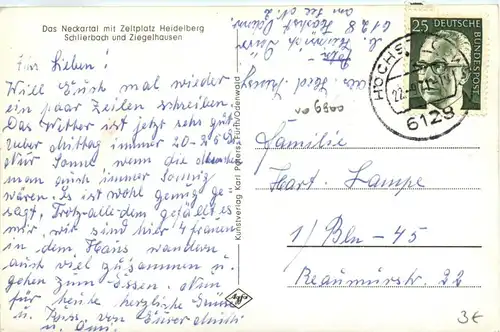 Das Neckartal mit Zeltplatz Heidelberg
Schlierbach und Ziegelhausen
Ihr Lieben!
Will Euch mal wieder
ein paar Zeilen schreiben.
Das Wetter ist jetzt sehr gut
über Mittag immer 20-25 C
Nur Sonne wenn die
man auch immer Sonnig
wären. Es ist wohl genug ge-
sagt, Trotz-alle-dem gefällt es
mir, wir sind hier 4 frauen
in dem Haus wandern
auch viel zusammen u.
gehen zum Essen. Nun
für heute herzliche Grüße
u. Küsse von Eurer Mutti
u. Omi.
Kunstverlag Karl Fürth/Odenwald
6128 Höchst Odenw.
25
DEUTSCHE
BUNDESPOST
HÖCHST
22.
6128
Familie
Hart. Lampe
1/Bln-45
Reaumurstr. 22
Agfa
3€